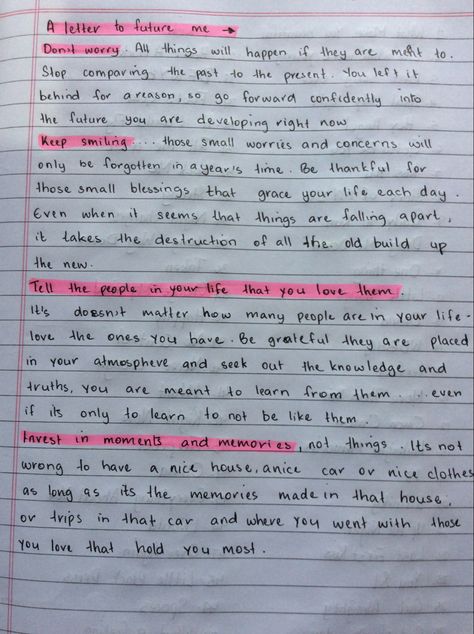 A letter to future me →
Don't worry. All things will happen if they are meant to.
Stop comparing the past to the present. You left it
behind for a reason, so go forward confidently into
the future you are developing right now
Keep smiling.... those small worries and concerns will
only be forgotten in a year's time. Be thankful for
those small blessings that grace your life each day.
Even when it seems that things are falling apart,
it takes the destruction of all the old build up
the new.
Tell the people in your life that you love them.
It's doesn't matter how many people are in your life-
love the ones you have. Be grateful they are placed
in your atmosphere and seek out the knowledge and
truths, you are meant to learn from them....even
if its only to learn to not be like them.
Invest in moments and memories, not things. Its not
wrong to have a nice house, a nice car or nice clothes
as long as its the memories made in that house,
or trips in that car and where you went with those
you love that hold you most.